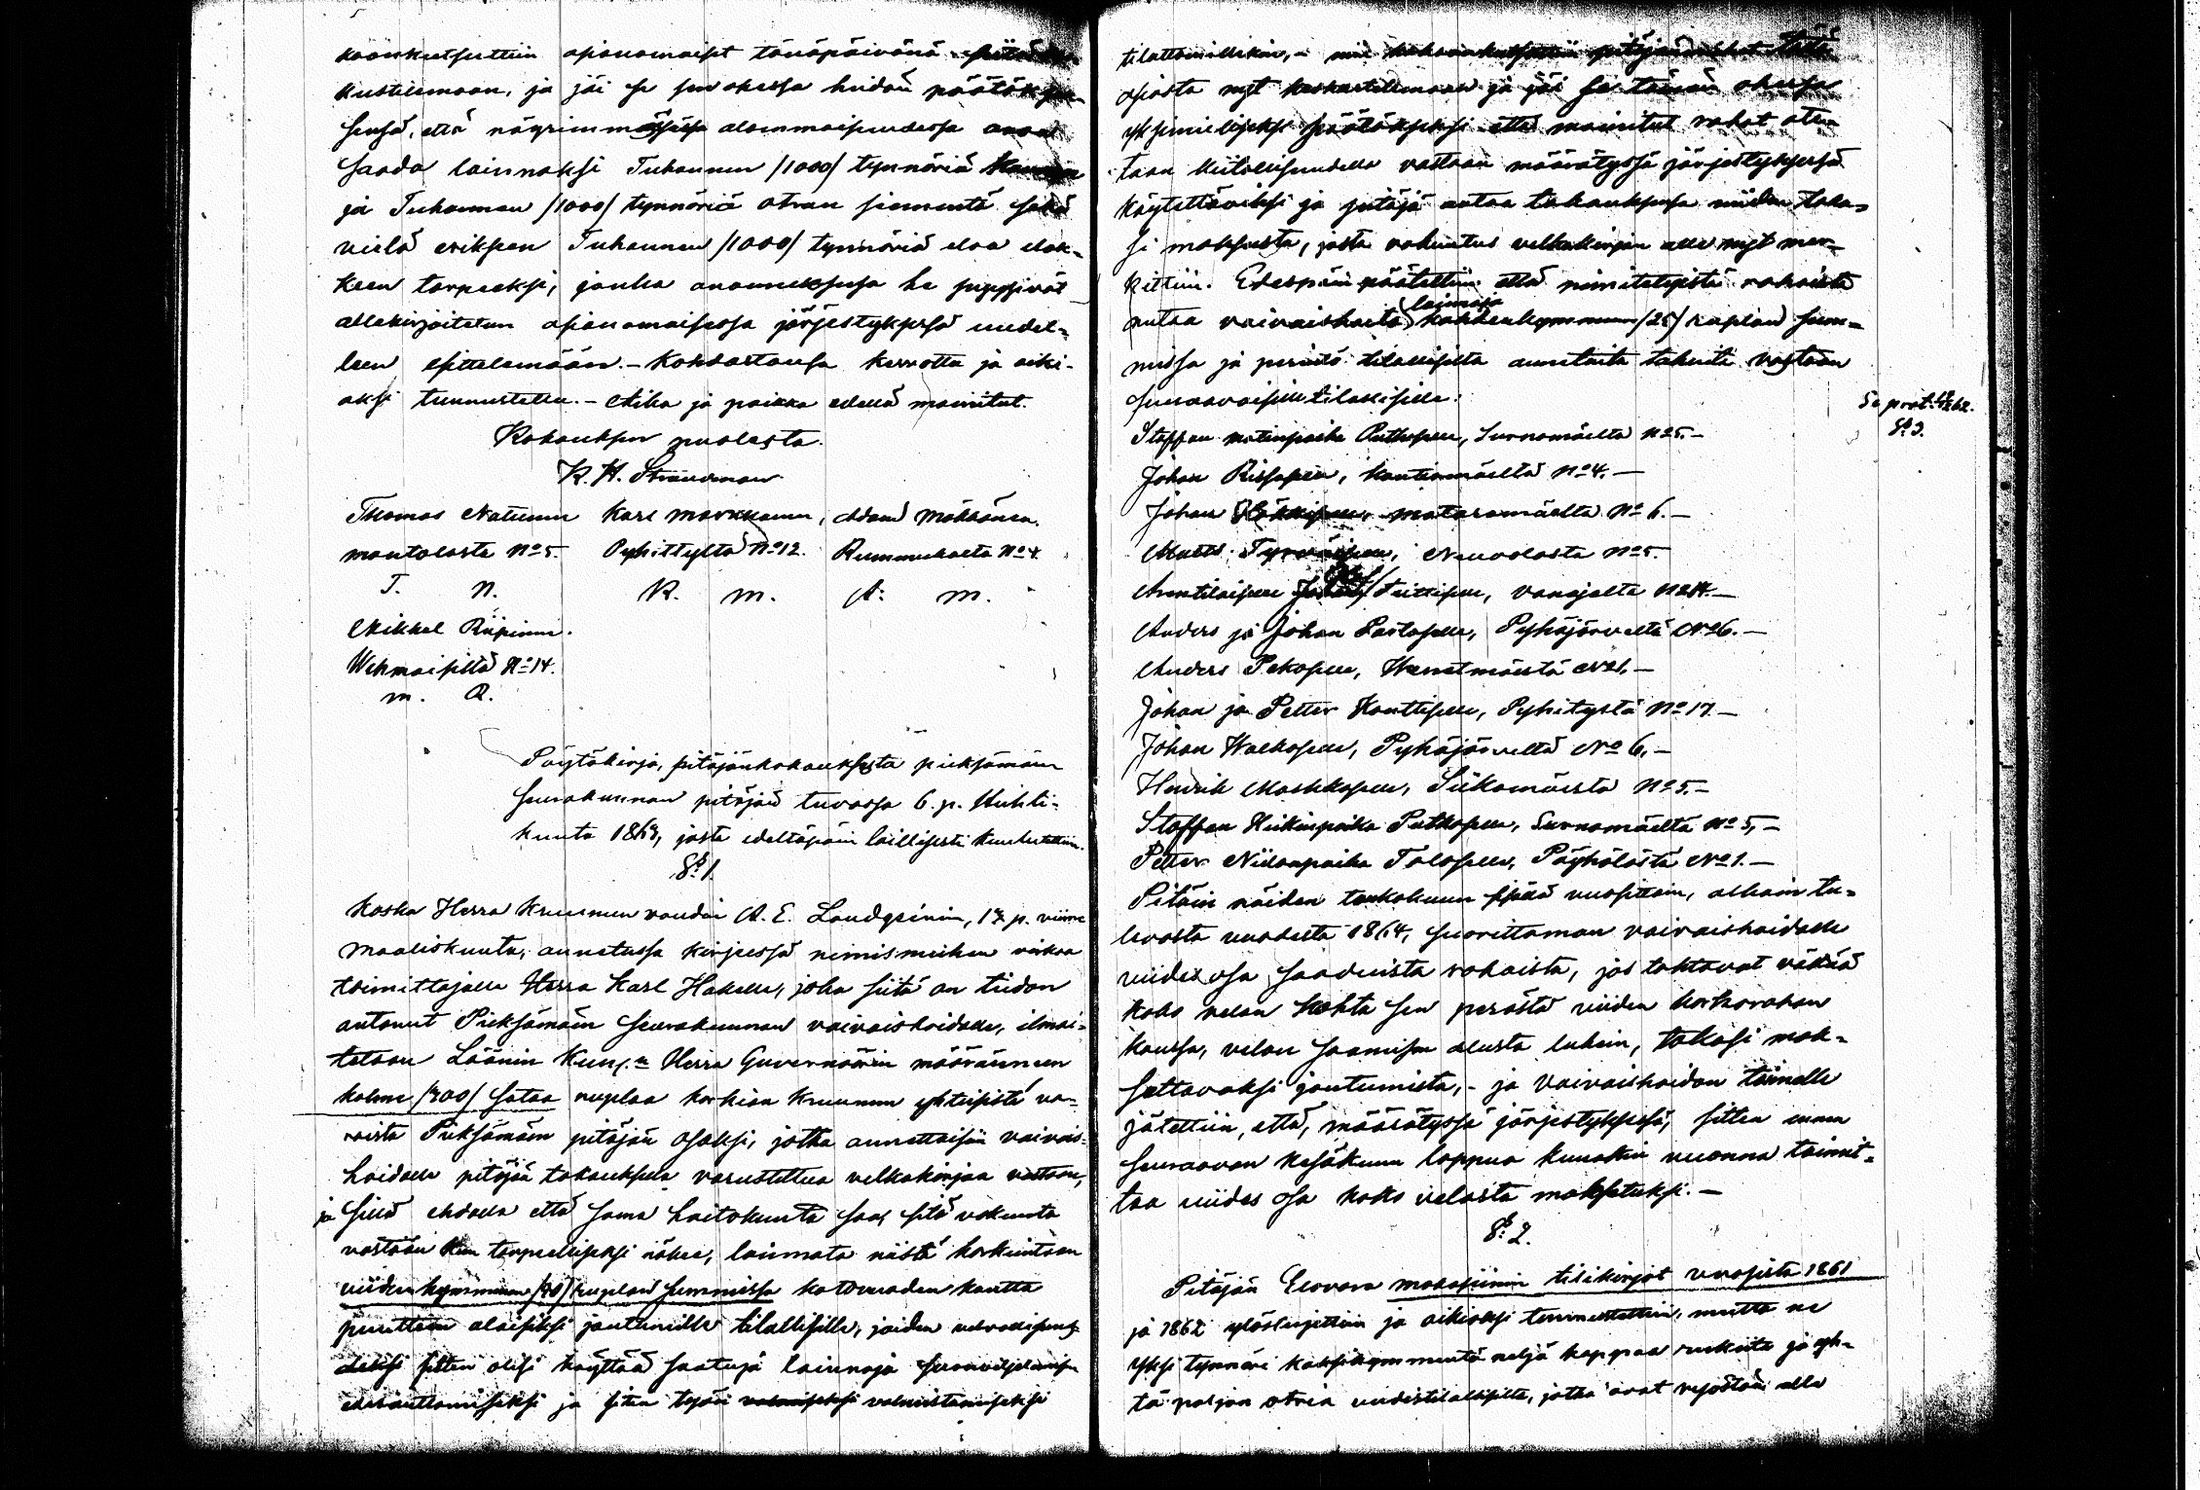 kooskutsuttiin asianomaiset tänäpäivänä
kustelemaan, ja jäi se sen ohessa heidän päätök
sensä, että nöyrimmässä alammaisuudessa anoa
saada lainaksi Tuhannen /1000/ tynnöriä
ja Tuhannen /1000/ tynnöriä otran siementä sekä
vielä eriksen Tuhannen /1000/ tynnöriä eloa elak-
keen tarpeeksi, jonka anomuksensa he pyysivät
allekirjoitetun asianomaisessa järjestyksessä uudel-
leen esittelemään. - Kohdastansa kerrottu ja oiki-
aksi tunnustettu. - Aika ja paikka edellä mainitut.
Kokouksen puolesta.
K. H. Strandman
Thomas Natunen Karl Markkanen, Adam Makkonen.
Montolasta No 5. Pyhityltä No 12. Rummukalta No 4
T. N. K. M. A. M.
Mikkel Ripinen.
Wehmaisilta No 14.
M. R.
Pöytäkirja, pitäjänkokouksesta pieksämäen
seurakunnan pitäjän tuvassa 6. p. Huhti-
kuuta 1863, josta edeltäpäin laillisesti kuulutettiin.
§ 1.
Koska Herra Kruunun voudin A. E. Landgrenin, 17 p. viime
Maaliskuuta, annetussa kirjeessä nimismiehen virkaa
toimittajalle Herra Karl Hakelle, joka siitä on tiedon
antanut Pieksämäen seurakunnan vaivaishoidolle, ilmoi-
tetaan Läänin Herra Guvernöörin määränneen
kolme /300/ sataa ruplaa korkian Kruunun yhteisistä va-
roista Pieksämäen pitäjän osaksi, jotka annettaisiin vaivais-
hoidolle pitäjän takauksella varustettua velkakirjaa vastaan,
ja sillä ehdolla että sama hoitokunta saa sitä vakuutta
vastaan kun tarpeelliseksi näkee, lainata niistä korkeintaan
viidenkymmenen /50/ ruplan summissa katovuoden kautta
puutteen alaisiksi joutuneille tilallisille, joiden velvollisuu-
deksi sitten olisi käyttää saatuja lainoja suonviljelyksen
edesauttamiseksi ja siten työn valmistamiseksi
tilattomillekin, - niin kokoonkutsuttiin pitäjänmiehet tästä
asiasta nyt keskustelemaan ja jäi se tämän ohessa
yksimieliseksi päätökseksi että mainitut rahat ote-
taan kiitollisuudella vastaan määrätyssä järjestyksessä
käytettäviksi ja pitäjä antaa takauksensa niiden taka-
si maksusta, josta vakuutus velkakirjan alle nyt mer-
kittiin. Edespäin päätettiin että nimitetyistä rahoista
antaa vaivaishoito lainoja kahdenkymmenen /25/ ruplan sum-
missa ja perintö tilallisilta annettuita takuita vastaan
seuraavaisille tilallisille:
§ 3.
Staffan Matinpoika Putkoselle, Surnumäeltä No 5. -
Johan Rissaselle, Kontiomäeltä No 4. -
Johan Häkkiselle, Mataramäeltä No 6. -
Matts Tyrväiselle, Neuvolasta No 5.
Anttilaiselle Tiittiselle, Vanajalta No 14. -
Anders ja Johan Partaselle, Pyhäjärveltä No 6. -
Anders Pekoselle, No 1. -
Johan ja Petter Konttiselle, Pyhitystä No 17. -
Johan Walkoselle, Pyhäjärveltä No 6. -
Henrik Maskkaselle, Siikamäestä No 5. -
Staffan Heikinpoika Putkoselle, Surnumäeltä No 5, -
Petter Niilonpoika Toloselle, Pöyhölästä No 1. -
Pitäin näiden toukokuun sisällä vuosittain, alkain tu-
levasta vuodesta 1864, suorittaman vaivaishoidolle
viides osa saaduista rahoista, jos tahtovat välttää
koko velan kohta sen perästä viiden korkorahan
kanssa, velan saamisen alusta lukein, takasi mak-
settavaksi joutumista, - ja Vaivaishoidon toimelle
jätettiin, että, määrätyssä järjestyksessä, sitten ennen
seuraavan Kesäkuun loppua kunakin vuonna toimit-
taa viides osa koko velasta maksetuksi. -
§ 2.
Pitäjän Elovara makasiinin tilikirjat vuosista 1861
ja 1862 ylösluettiin ja oikiaksi tunnustettiin, mutta ne
yksi tynnöri kaksikymmentä neljä kappaa rukiita ja yh-
tä paljon otria uudistilallisilta, jotka ovat rejästään alla